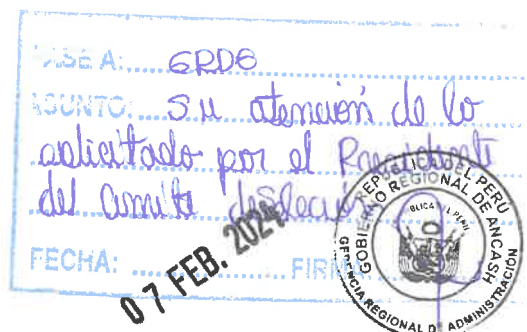 PASE A: GRDE
ASUNTO: Su atención de lo
solicitado por el Presidente
del Comité de Selección
FECHA: 07 FEB. 2024 FIRMA
REPUBLICA DEL PERU
GOBIERNO REGIONAL DE ANCASH
GERENCIA REGIONAL DE ADMINISTRACIÓN